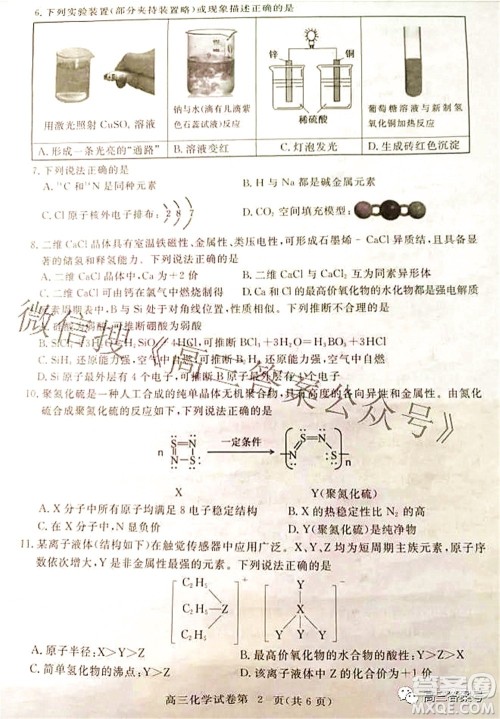 6.下列实验装置(部分夹持装置略)或现象描述正确的是
用激光照射 CuSO₄ 溶液
钠与水(滴有几滴紫
色石蕊试液)反应
锌 铜
稀硫酸
葡萄糖溶液与新制氢
氧化铜加热反应
A.形成一条光亮的“通路”
B.溶液变红
C.灯泡发光
D.生成砖红色沉淀
7.下列说法正确的是
A.¹⁴C 和¹⁴N 是同种元素
B.H 与 Na 都是碱金属元素
C.Cl 原子核外电子排布: 2 8 7
D.CO₂ 空间填充模型:
8.二维 CaCl 晶体具有室温铁磁性、金属性、类压电性,可形成石墨烯-CaCl 异质结,且具备显
著的储氢和释氢能力。下列说法正确的是
A.二维 CaCl 晶体中,Ca 为+2 价
B.二维 CaCl 与 CaCl₂ 互为同素异形体
C.二维 CaCl 可由钙在氯气中燃烧制得
D.Ca 和 Cl 的最高价氧化物的水化物都是强电解质
元素周期表中,B 与 Si 处于对角线位置,性质相似。下列推断不合理的是
硅酸为弱酸可推断硼酸为弱酸
HCl,可推断 B
C.SiH₄ 还原能力强于 CH₄,空气中自燃,可推断 B₂H₆ 还原能力强,空气中自燃
D.Si 原子最外层有 4 个电子,可推断 B 原子最外层有 4 个电子
10.聚氮化硫是一种人工合成的纯单晶体无机聚合物,具有高度的各向异性和金属性。由氮化
硫合成聚氮化硫的反应如下,下列说法正确的是
n S N S N 一定条件 S N S N n
X Y(聚氮化硫)
A.X 分子中所有原子均满足 8 电子稳定结构
B.X 的热稳定性比 N₂ 的高
C.在 X 分子中,N 显负价
D.Y(聚氮化硫)是纯净物
11.某离子液体(结构如下)在触觉传感器中应用广泛。X、Y、Z 均为短周期主族元素,原子序
数依次增大,Y 是非金属性最强的元素。下列说法正确的是
C₂H₅ Y
C₂H₅ Z + Y X Y -
C₂H₅ Y
A.原子半径:X>Y>Z
B.最高价氧化物的水合物的酸性:X>Z
C.简单氢化物的沸点:Y>Z
高三化学试卷第 2 页(共 6 页)
微信搜《高三答案公众号》
高三答案号
答案圈